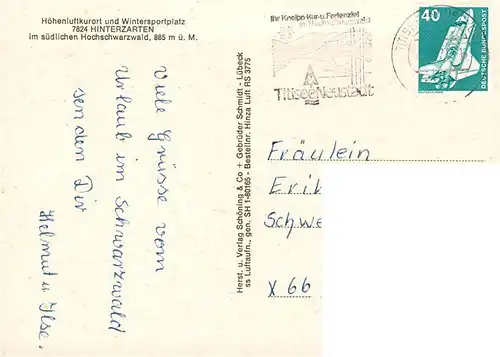 Höhenluftkurort und Wintersportplatz
7824 HINTERZARTEN
im südlichen Hochschwarzwald, 885 m ü. M.
Viele Grüsse vom
Urlaub im Schwarzwald
senden Dir
Helmut u. Ilse.
Herst. u. Verlag Schöning & Co + Gebrüder Schmidt - Lübeck
ss Luftaufn., gen. SH 1-80165 - Bestellnr. Hinza Luft RS 3775
Ihr Kneipp-Kur-u. Ferienziel
im Hochschwarzwald
Titisee-Neustadt
40
DEUTSCHE BUNDESPOST
Fräulein
Erik
Schwe
X 66